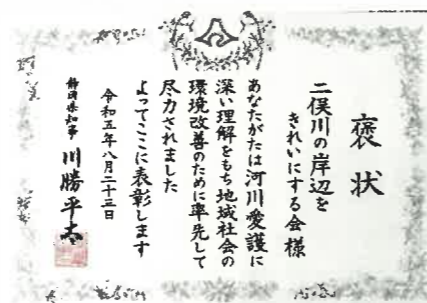 褒状
二俣川の岸辺を
きれいにする会様
あなたがたは河川愛護に
深い理解をもち地域社会の
環境改善のために率先して
尽力されました
よってここに表彰します
令和五年八月二十三日
静岡県知事 川勝平太